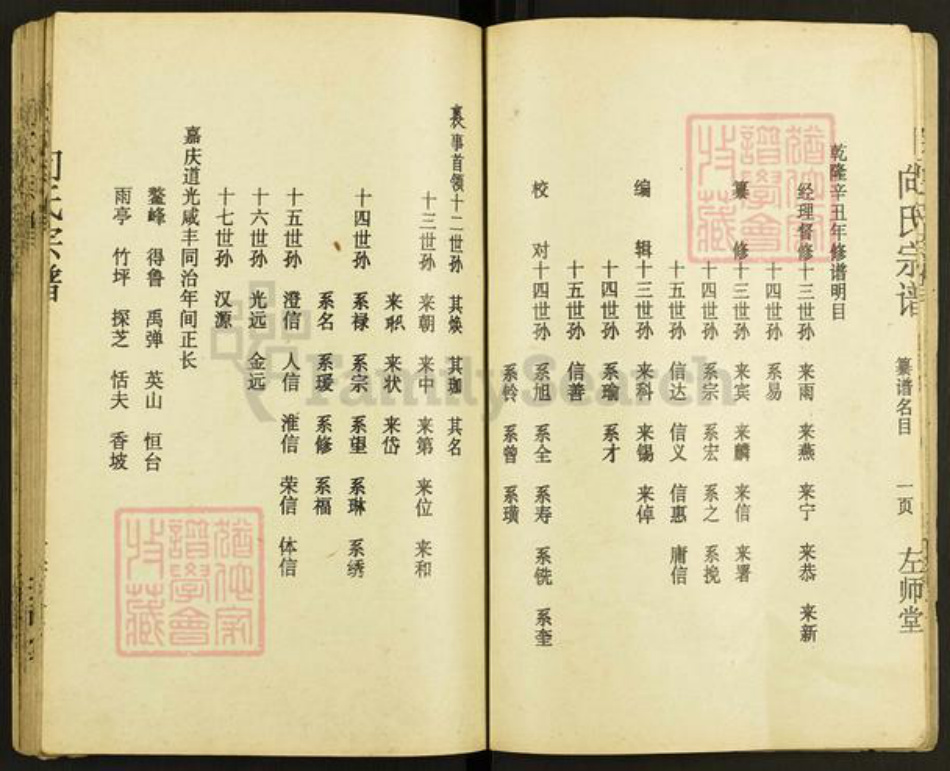 向氏宗谱 纂谱名目 一页 左师堂
乾隆辛丑年修谱明目
经理督修 十三世孙 来雨 来燕 来宁 来恭 来新
十四世孙 系易
纂修 十三世孙 来宾 来麟 来信 来署
十四世孙 系宗 系宏 系之 系挽
十五世孙 信达 信义 信惠 庸信
编辑 十三世孙 来科 来锡 来倬
十四世孙 系瑜 系才
十五世孙 信善
校对 十四世孙 系旭 系全 系寿 系铣 系奎
系铃 系曾 系璜
襄事首领 十二世孙 其焕 其珈 其名
十三世孙 来朝 来中 来第 来位 来和
来状 来岱
十四世孙 系禄 系宗 系望 系琳 系绣
系名 系瑗 系修 系福
十五世孙 澄信 人信 淮信 荣信 体信
十六世孙 光远 金远
十七世孙 汉源
嘉庆道光咸丰同治年间正长
鳌峰 得鲁 禹弹 英山 恒台
雨亭 竹坪 探芝 恬夫 香坡
氏宗谱
FamilySearch